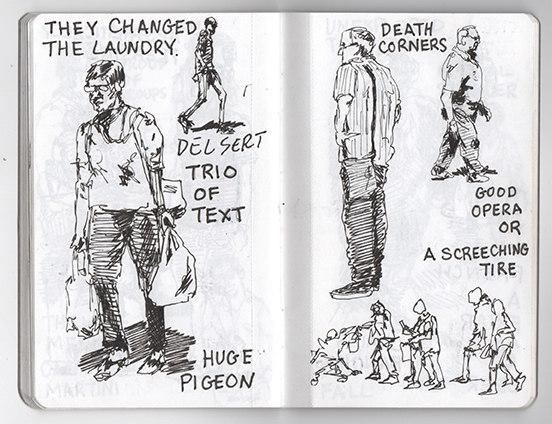 THEY CHANGED
THE LAUNDRY.
DEL SERT
TRIO
OF
TEXT
HUGE
PIGEON
MARTINI
DEATH
CORNERS
GOOD
OPERA
OR
A SCREECHING
TIRE
FALL